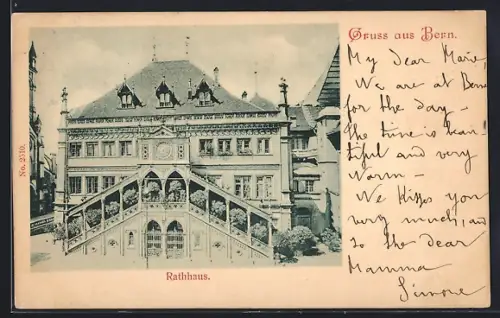 Gruss aus Bern.
No. 2310.
Rathhaus.
My Dear Marie,
We are at Bern
for the day –
The time is beau-
tiful and very
warm –
We kisses you
very much, and
so the dear
Mamma
Simone